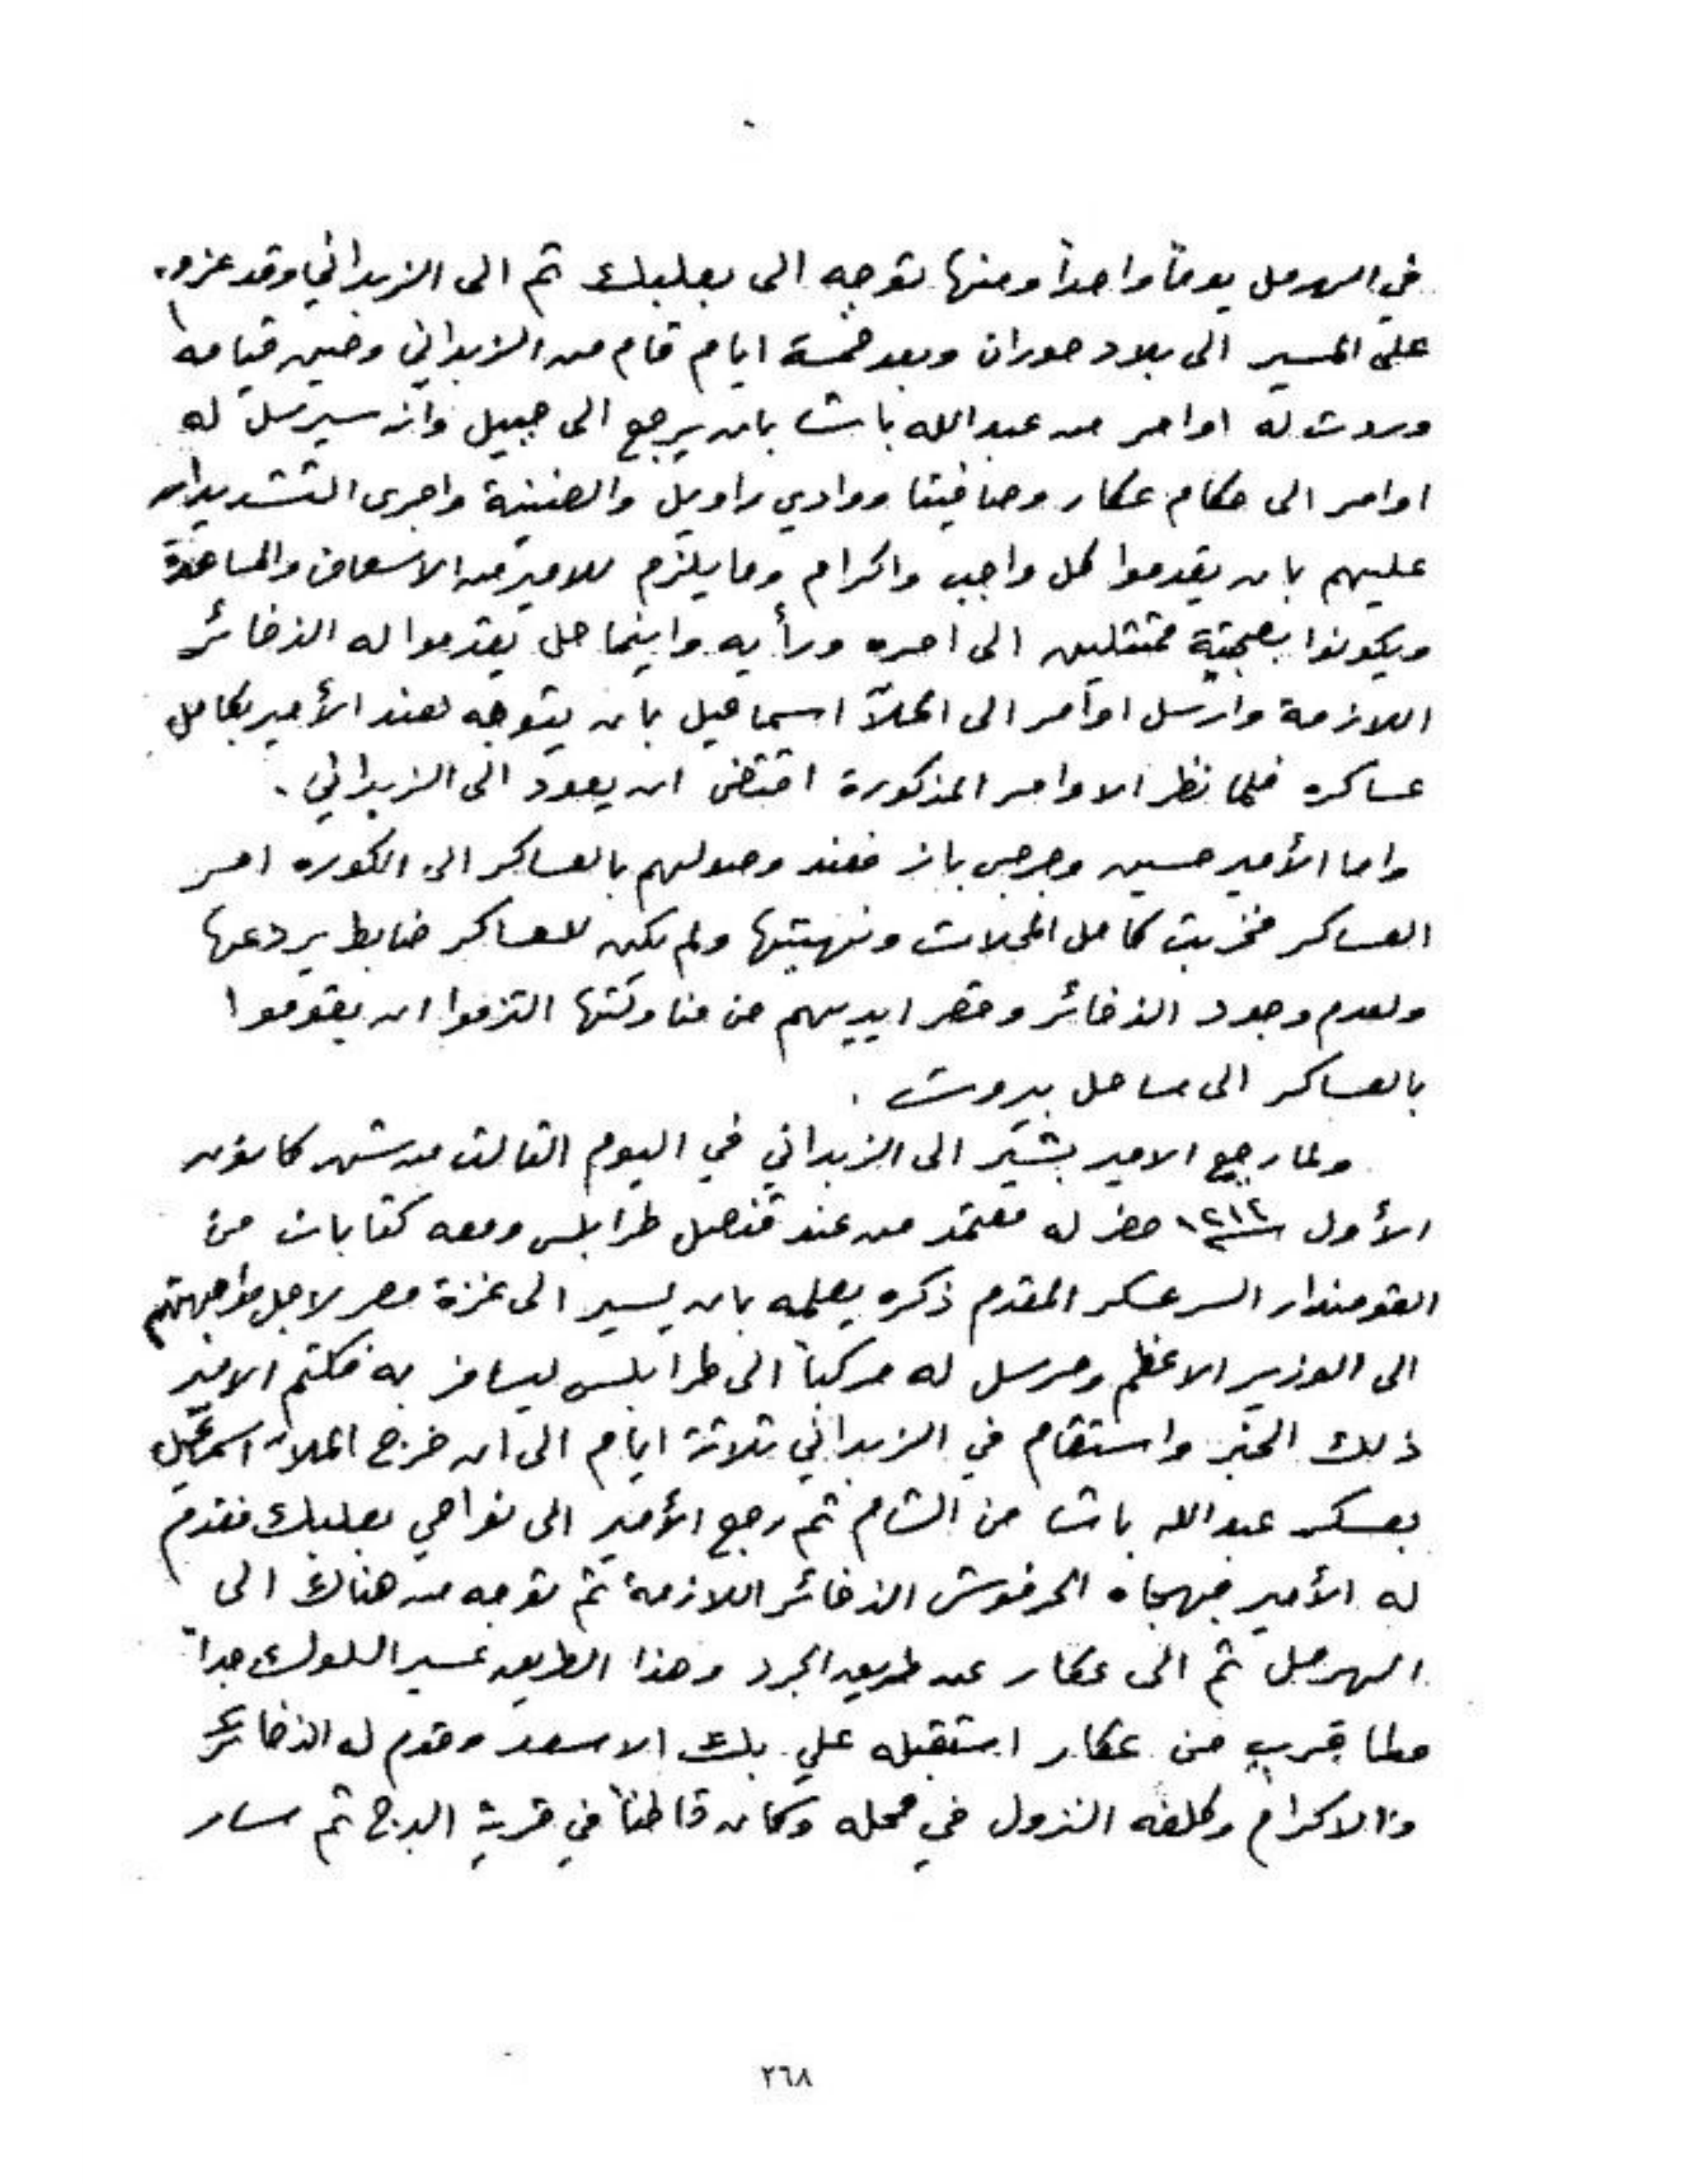 في الهرمل يوماً واحداً ومنها توجه الى بعلبك ثم الى الزبداني وقد عزم
على المسير الى بلاد حوران وبعد خمسة ايام قام من الزبداني وحين قيامه
وردت له اوامر من عبدالله باشا بان يرجع الى جبيل وانه سيرسل له
اوامر الى حكام عكار وصافيتا ووادي راويل والضنية واجرى التشديدات
عليهم بان يقدموا كل واجب واكرام وما يلزم للامير من الاسعاف والمساعدة
ويكونوا بصحبته ممتثلين الى امره ورأيه واينما حل يقدموا له الذخائر
اللازمة وارسل اوامر الى الملّا اسماعيل بان يتوجه لعند الأمير بكامل
عساكره فلما نظر الاوامر المذكورة اقتضى ان يعود الى الزبداني .
واما الأمير حسين وجرجس باز فعند وصولهم بالعساكر الى الكوره امر
العساكر فخربت كامل المحلات ونهبتها ولم يكن للعساكر ضابط يردعها
ولعدم وجود الذخائر وقصر ايديهم من التزموا ان يقوموا
بالعساكر الى ساحل بيروت .
ولما رجع الامير بشير الى الزبداني في اليوم الثالث من شهر كانون
الأول ١٢١٤ حضر له معتمد من عند قنصل طرابلس ومعه كتابات من
القومندار السرعسكر المقدم ذكره يعلمه بان يسير الى غزة مصر لاجل مواجهتهم
الى الوزير الاعظم ومرسل له مركباً الى طرابلس ليسافر به فكتم الامير
ذلك الخبر واستقام في الزبداني ثلاثة ايام الى ان خرج الملا اسمعيل
بعسكر عبدالله باشا من الشام ثم رجع الأمير الى نواحي بعلبك فقدم
له الأمير جهجاه الحرفوش الذخائر اللازمة ثم توجه من هناك الى
الهرمل ثم الى عكار عن طريق الجرد وهذا الطريق عسير السلوك جداً
ولما قرب من عكار استقبله علي بك الاسعد وقدم له الذخائر
والاكرام وكلفه النزول في محله وكان قاطناً في قرية البرج ثم سار
٢٦٨